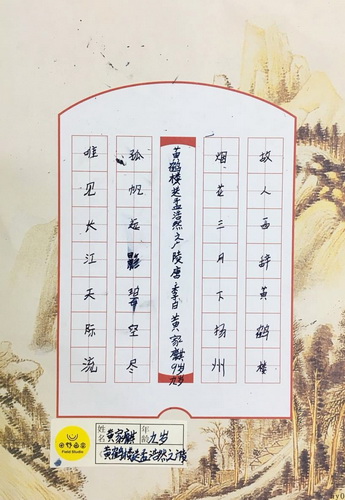 故人西辞黄鹤楼
烟花三月下扬州
黄鹤楼送孟浩然之广陵唐李白黄家麒9岁
九岁
孤帆远影碧空尽
唯见长江天际流
Field Studio
姓名 黄家麒 年龄 九岁
黄鹤楼送孟浩然之广陵